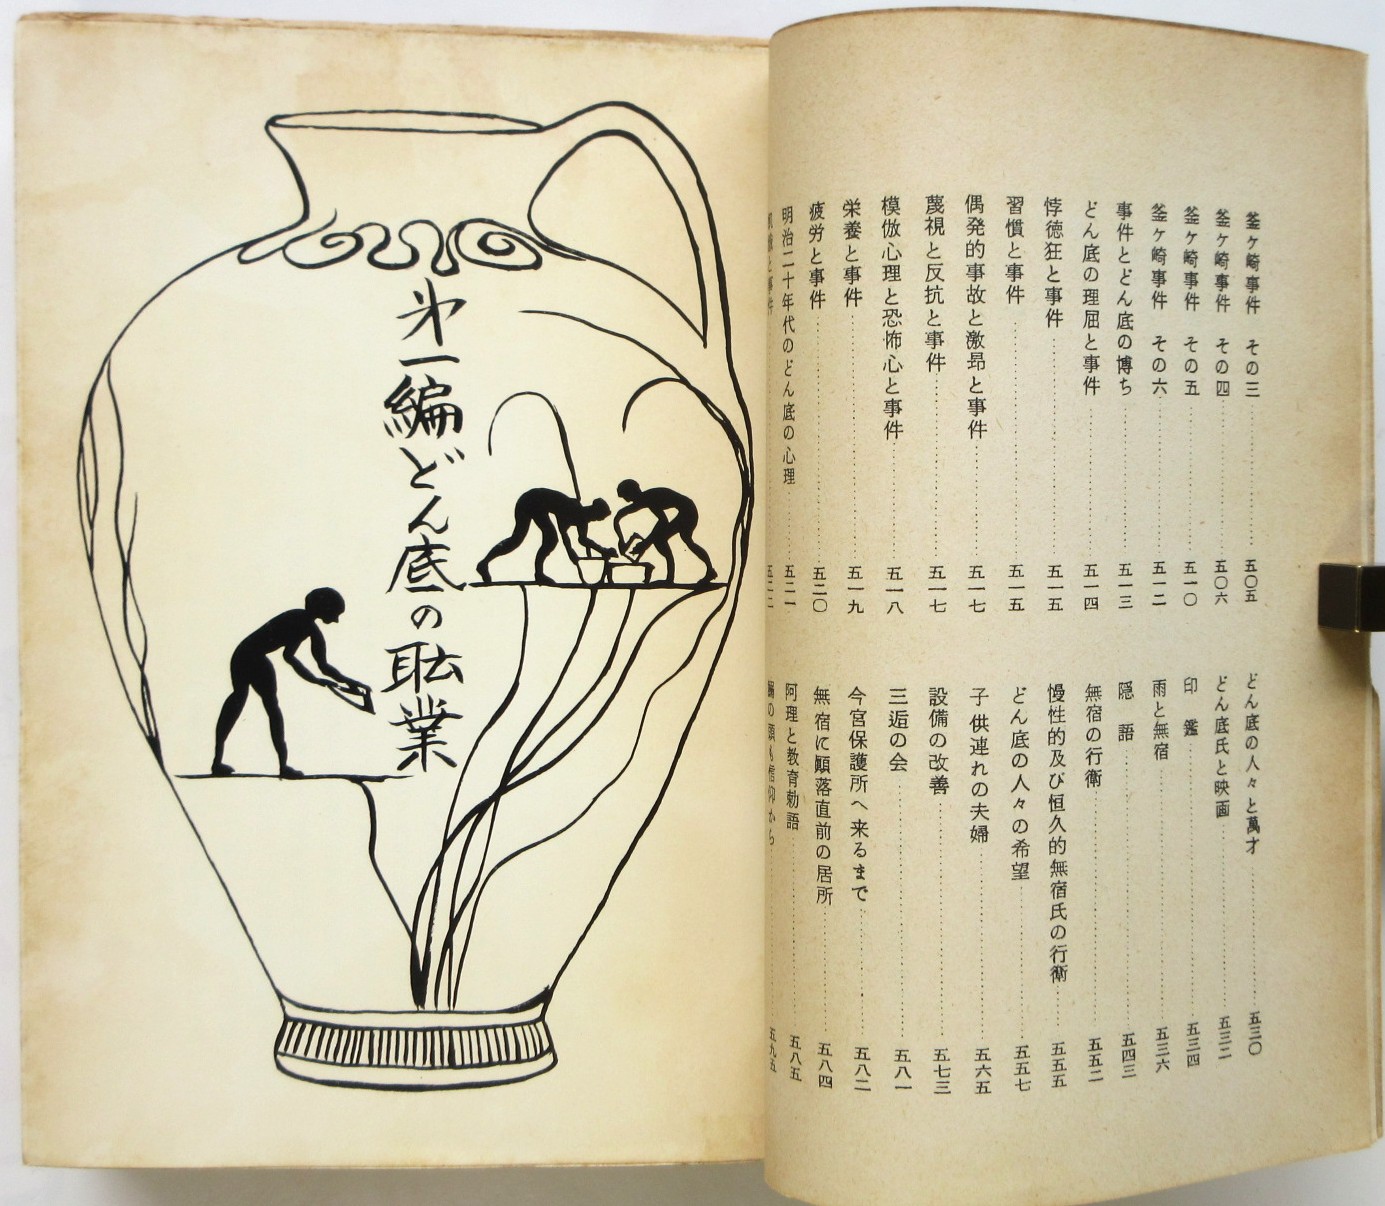 釜ヶ崎事件　その三……五〇五
釜ヶ崎事件　その四……五〇六
釜ヶ崎事件　その五……五一〇
釜ヶ崎事件　その六……五一二
事件とどん底の博ち……五一三
どん底の理屈と事件……五一四
悖徳狂と事件……五一五
習慣と事件……五一五
偶発的事故と激昂と事件……五一七
蔑視と反抗と事件……五一七
模倣心理と恐怖心と事件……五一八
栄養と事件……五一九
疲労と事件……五二〇
明治二十年代のどん底の心理……五二一
と事件……五二二
どん底の人々と萬才……五三〇
どん底氏と映画……五三二
印　鑑……五三四
雨と無宿……五三六
隠　語……五四三
無宿の行衛……五五二
慢性的及び恒久的無宿氏の行衛……五五五
どん底の人々の希望……五五七
子供連れの夫婦……五六五
設備の改善……五七三
三逅の会……五八一
今宮保護所へ来るまで……五八二
無宿に顚落直前の居所……五八四
阿理と教育勅語……五八五
の頭も信仰から……五九五
第一編どん底の職業